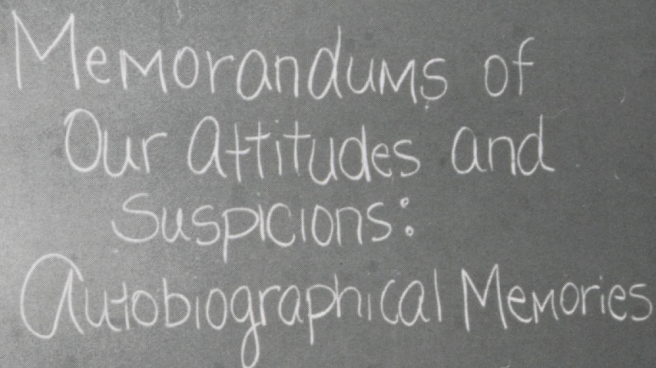 Memorandums of
Our Attitudes and
Suspicions:
Autobiographical Memories